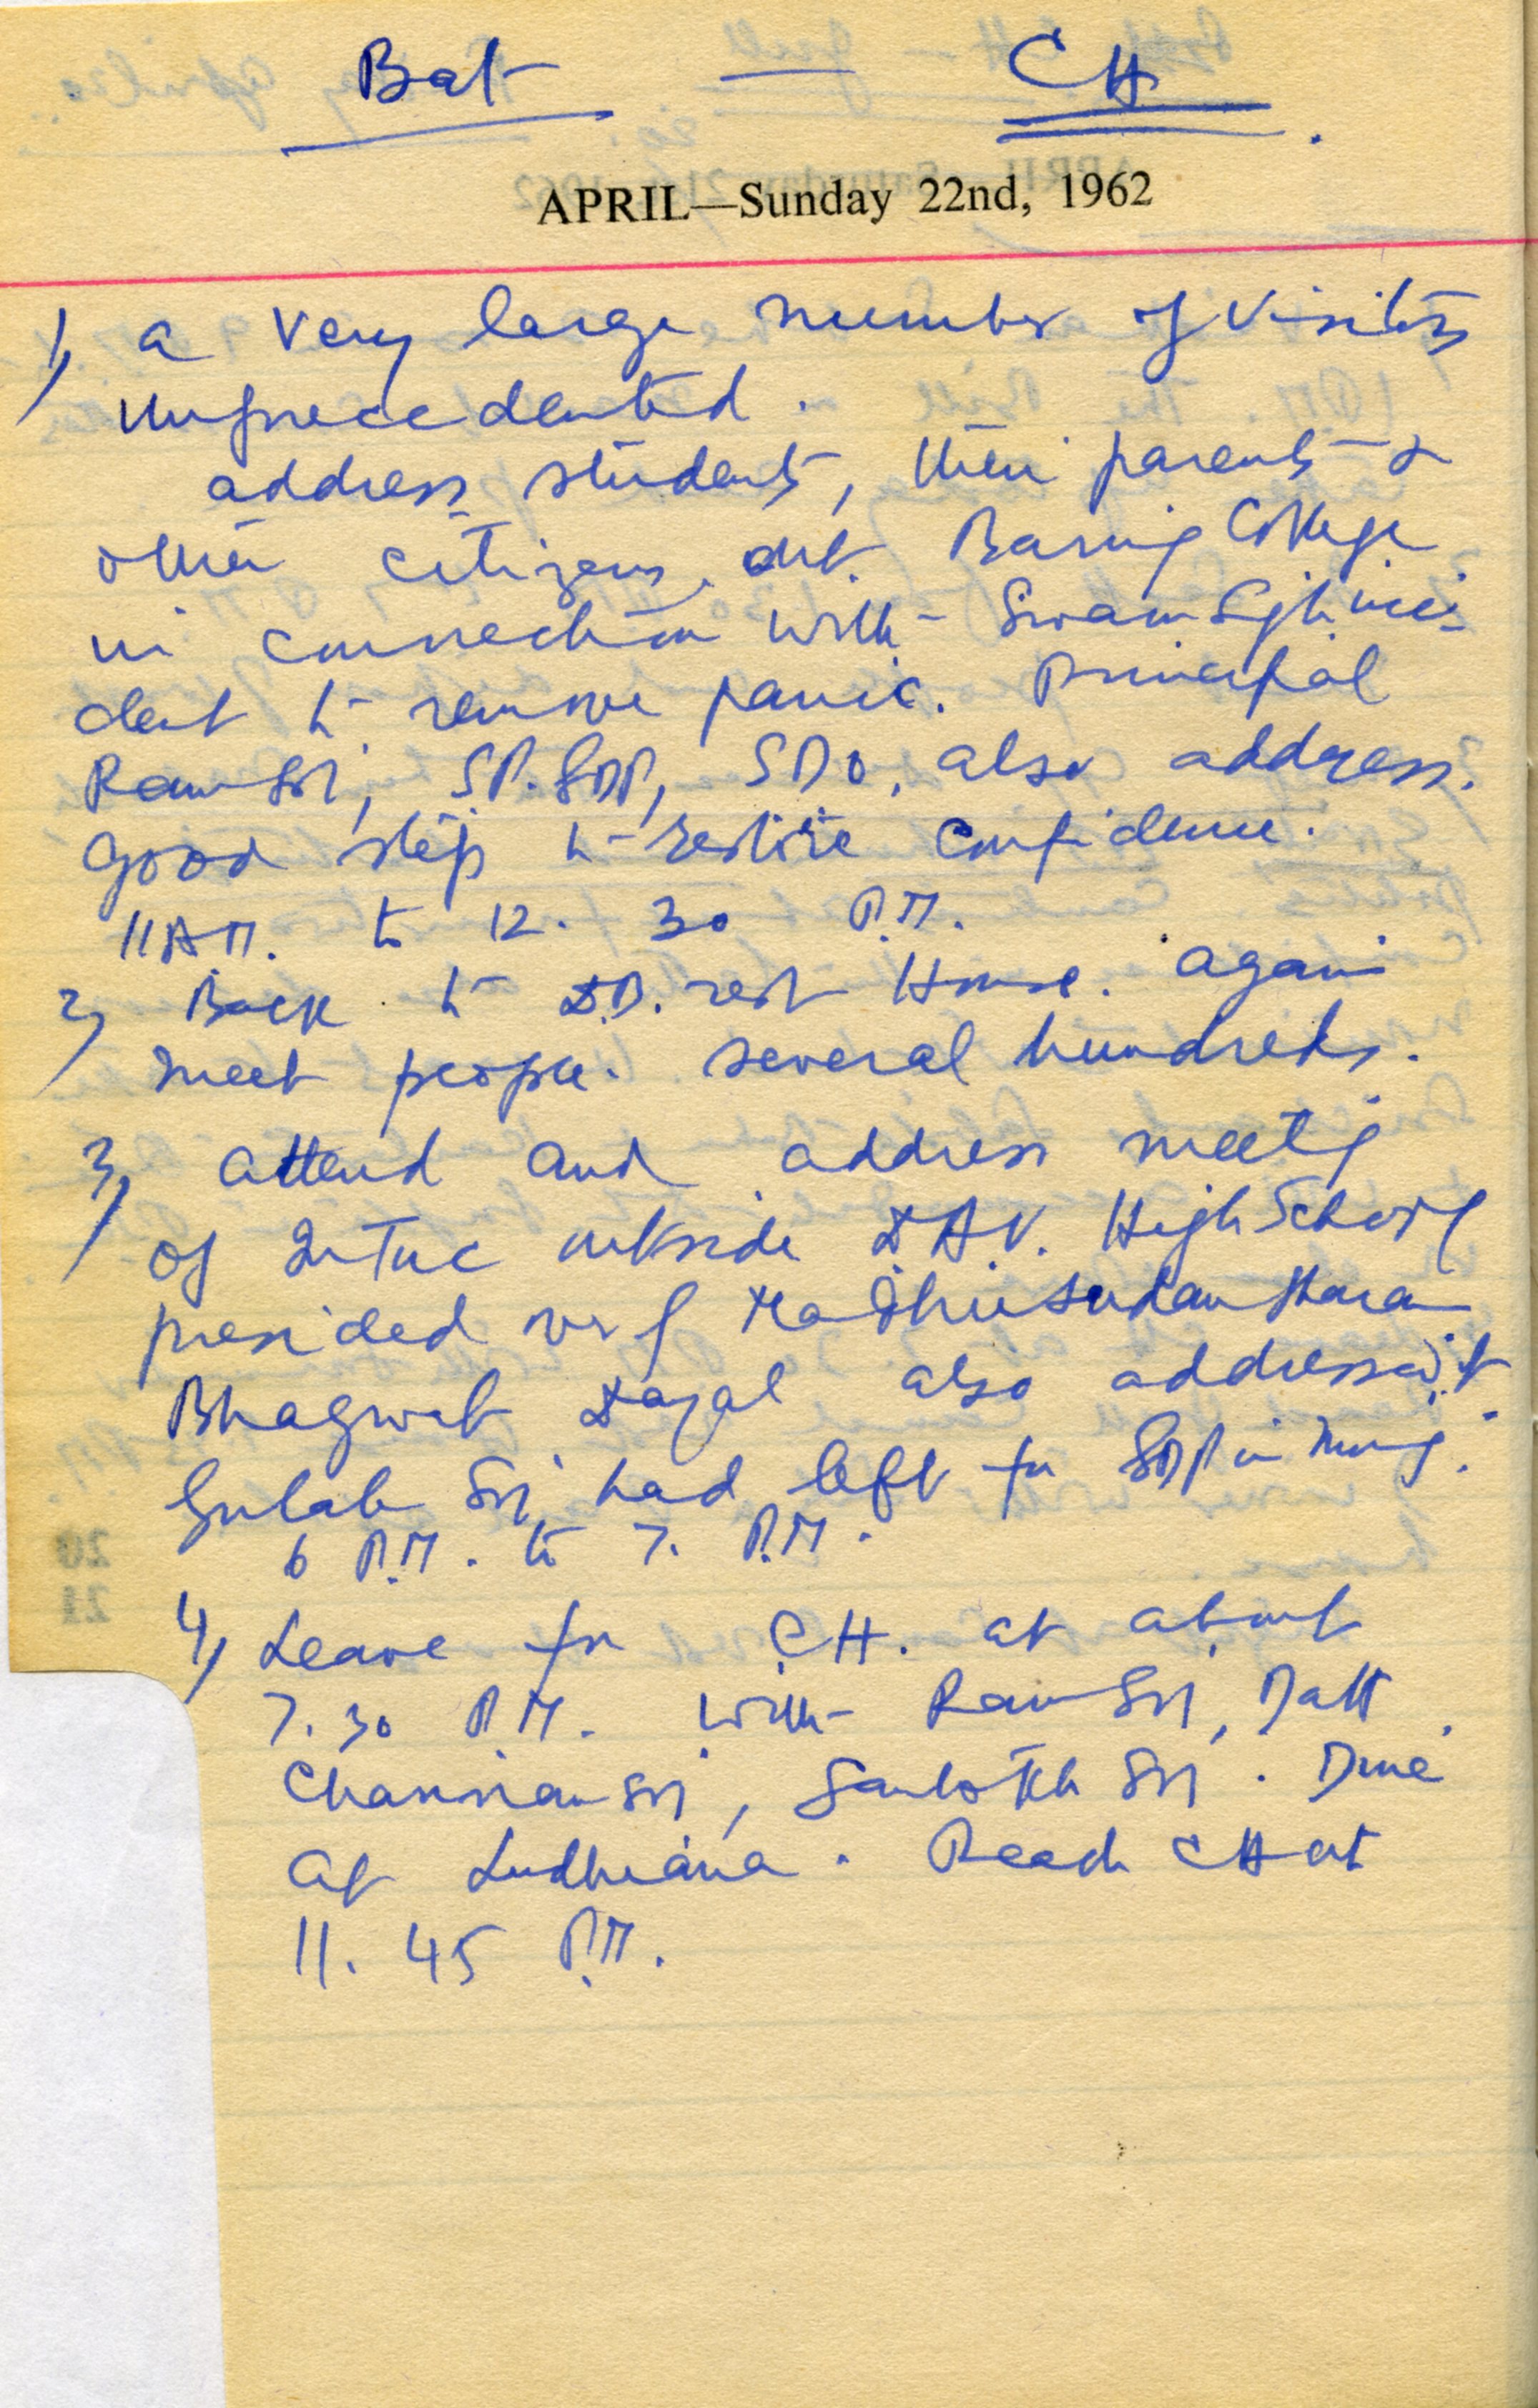 Bat — CH.
APRIL—Sunday 22nd, 1962
1, a very large number of visitors
unprecedented.
address students, their parents &
other citizens at Baring College
in connection with Swarn Sgh inci-
dent to remove panic. Principal
Ram Sn, SP. GDP, SDO, also address.
Good step to restore confidence.
11 AM. to 12. 30 P.M.
2, Back to D.B. rest House. again
meet people. several hundreds.
3, attend and address meetg
of INTUC outside D.A.V. High School
presided over by Madhusudan
Bhagwat Dayal also addressed it
Gulab Sn had left for GDP in mng.
6 P.M. to 7. P.M.
4, Leave for C.H. at about
7. 30 P.M. with Ram Sn, Datt,
Channan Sn, Santokh Sn. Dine
at Ludhiana. Reach CH at
11. 45 P.M.